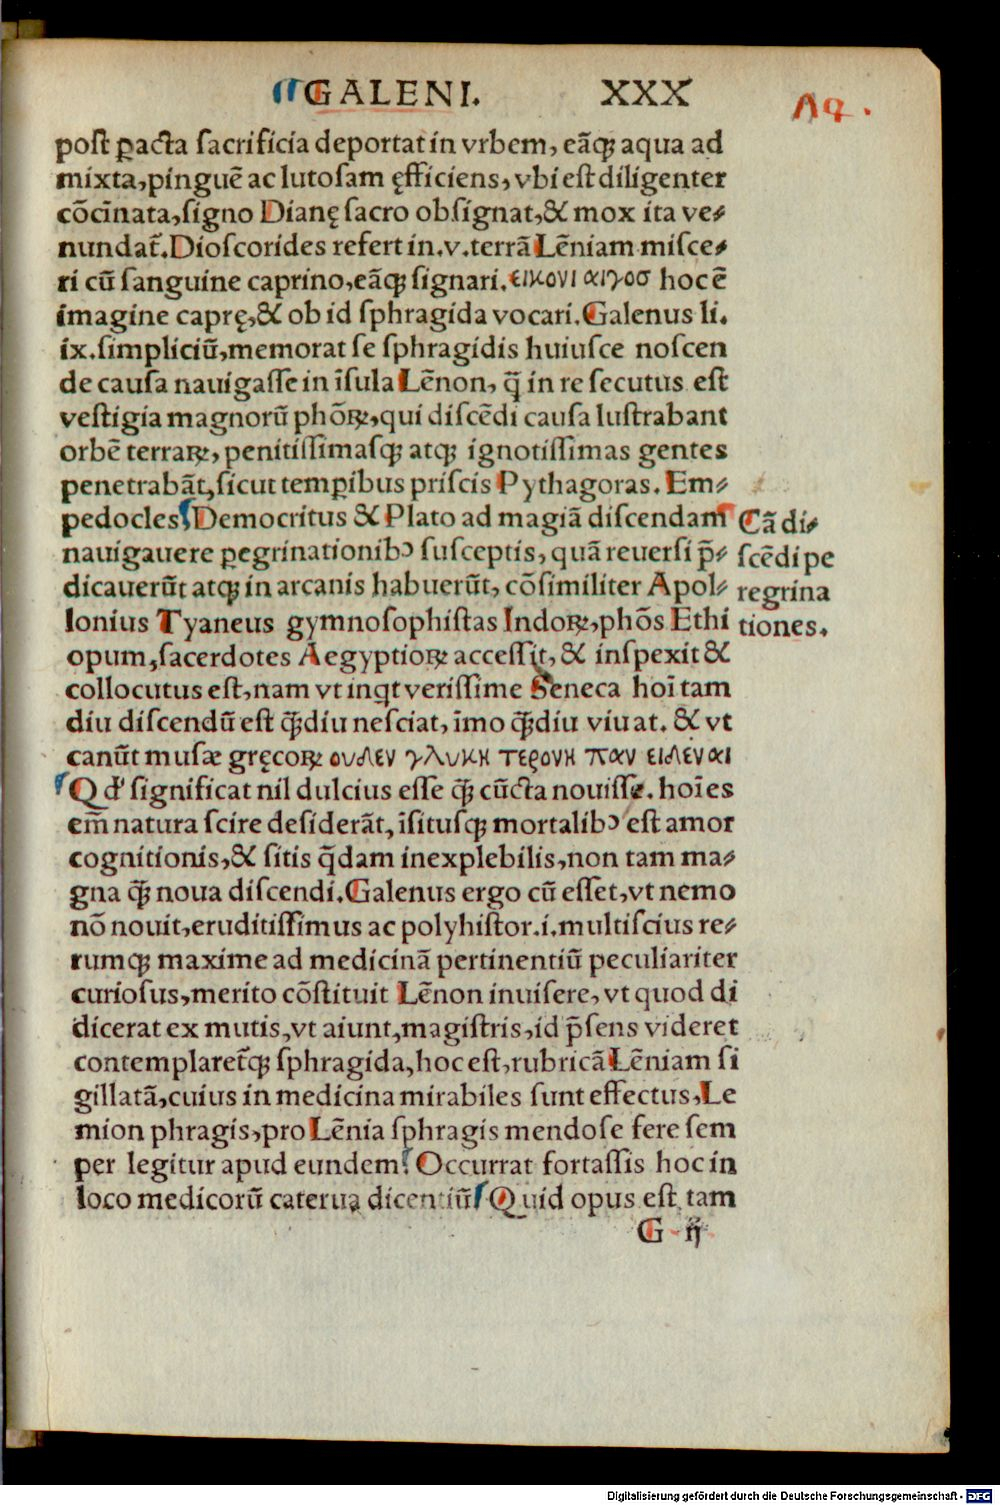 GALENI. XXX
Aq.
post ꝑacta sacrificia deportat in vrbem, eāqꝫ aqua ad
mixta, pinguē ac lutosam ęfficiens, vbi est diligenter
cōcīnata, signo Dianę sacro obsignat, & mox ita ve⸗
nundat̄. Dioscorides refert in .v. terrā Lēniam misce⸗
ri cū sanguine caprino, eāqꝫ signari. εικονι αιγοσ hoc ē
imagine caprę, & ob id sphragida vocari. Galenus li.
ix. simpliciū, memorat se sphragidis huiusce noscen
de causa nauigasse in īsula Lēnon, q̄ in re secutus est
vestigia magnorū phōꝝ, qui discēdi causa lustrabant
orbē terraꝝ, penitissimasqꝫ atqꝫ ignotissimas gentes
penetrabāt, sicut tempibus priscis Pythagoras. Em⸗
pedocles Democritus & Plato ad magiā discendam
nauigauere ꝑegrinationibꝰ susceptis, quā reuersi p̄⸗
dicauerūt atqꝫ in arcanis habuerūt, cōsimiliter Apol⸗
lonius Tyaneus gymnosophistas Indoꝝ, phōs Ethi
opum, sacerdotes Aegyptioꝝ accessit, & inspexit &
collocutus est, nam vt inqt verissime Seneca hoī tam
diu discendū est q̄ꝫdiu nesciat, īmo q̄ꝫdiu viuat. & vt
canūt musæ gręcoꝝ ουδεν γλυκη τερονη παν ειδέναι
Qd' significat nil dulcius esse q̄ꝫ cūcta nouisse. hoīes
em̄ natura scire desiderāt, īsitusqꝫ mortalibꝰ est amor
cognitionis, & sitis q̄dam inexplebilis, non tam ma⸗
gna q̄ꝫ noua discendi. Galenus ergo cū esset, vt nemo
nō nouit, eruditissimus ac polyhistor .i. multiscius re⸗
rumqꝫ maxime ad medicinā pertinentiū peculiariter
curiosus, merito cōstituit Lēnon inuisere, vt quod di
dicerat ex mutis, vt aiunt, magistris, id p̄sens videret
contemplaret̄qꝫ sphragida, hoc est, rubricā Lēniam si
gillatā, cuius in medicina mirabiles sunt effectus, Le
mion phragis, pro Lēnia sphragis mendose fere sem
per legitur apud eundem. Occurrat fortassis hoc in
loco medicorū caterua dicentiū Quid opus est tam
G ij
Cā di⸗
scēdi pe
regrina
tiones.
Digitalisierung gefördert durch die Deutsche Forschungsgemeinschaft - DFG